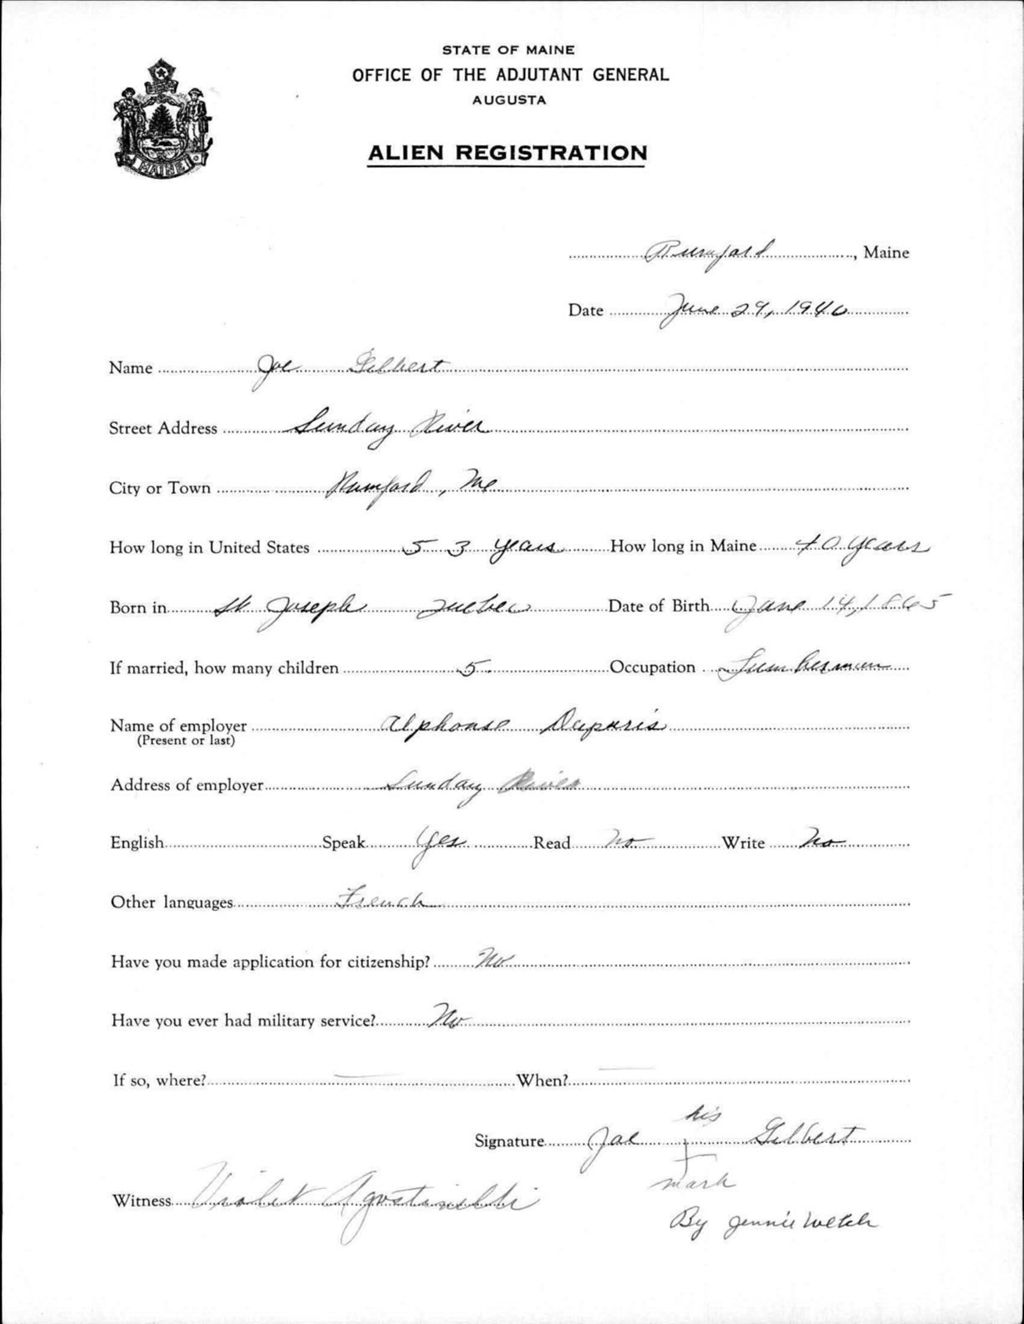 STATE OF MAINE
OFFICE OF THE ADJUTANT GENERAL
AUGUSTA
ALIEN REGISTRATION
MAINE
Rumford, Maine
Date June 29, 1940
Name Joe Gilbert
Street Address Sunday River
City or Town Rumford, Me
How long in United States 53 years How long in Maine 40 years
Born in St Joseph Quebec Date of Birth June 14, 1865
If married, how many children 5 Occupation Lumberman
Name of employer Alphonse Duparis
(Present or last)
Address of employer Sunday River
English Speak Yes Read No Write No
Other languages French
Have you made application for citizenship? No
Have you ever had military service? No
If so, where? — When? —
his
Signature Joe + Gilbert
mark
Witness Violet Agostinelli
By Jennie Welch